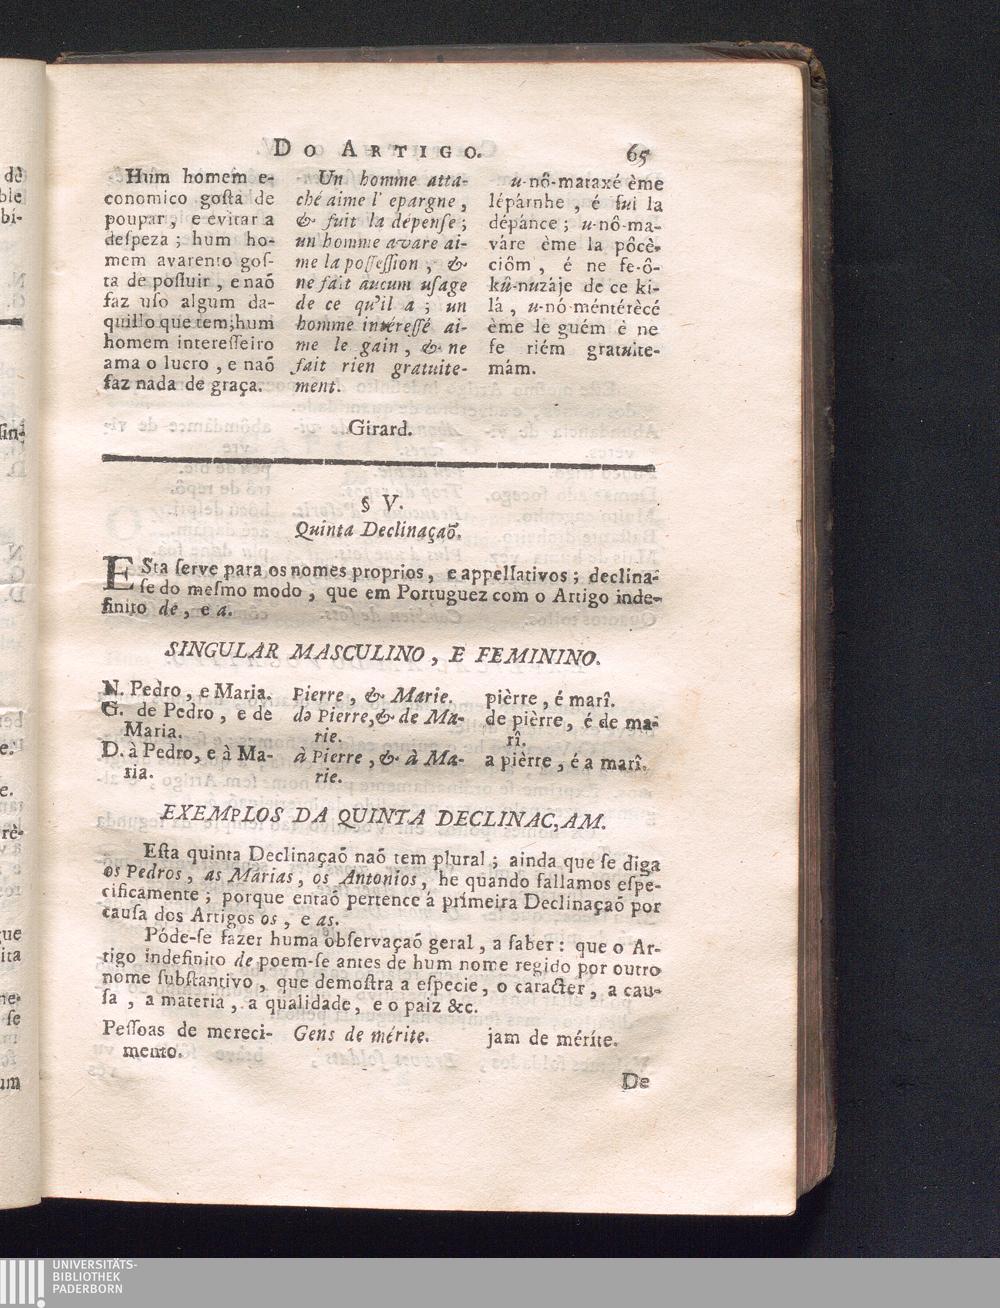 DO ARTIGO. 65
Hum homem e-
conomico goſta de
poupar, e evitar a
deſpeza; hum ho-
mem avarento goſ-
ta de poſſuir, e naõ
faz uſo algum da-
quillo que tem; hum
homem intereſſeiro
ama o lucro, e naõ
faz nada de graça.
Un homme atta-
ché aime l' epargne,
& fuit la dépenſe;
un homme avare ai-
me la poſſeſſion, &
ne fait aucum uſage
de ce qu'il a; un
homme intéreſſé ai-
me le gain, & ne
fait rien gratuite-
ment.
u-nô-mataxé ème
lépárnhe, é fui la
dépánce; u-nô-ma-
váre ème la pôcè-
ciôm, é ne fe-ô-
kû-nuzáje de ce ki-
lá, u-nó-méntérècé
ème le guém è ne
fe riém gratuite-
mám.
Girard.
§ V.
Quinta Declinaçaõ.
ESta ſerve para os nomes proprios, e appellativos; declina-
ſe do meſmo modo, que em Portuguez com o Artigo inde-
finito de, e a.
SINGULAR MASCULINO, E FEMININO.
N. Pedro, e Maria. Pierre, & Marie. pièrre, é marî.
G. de Pedro, e de de Pierre, & de Ma- de pièrre, é de ma-
Maria. rie. rî.
D. à Pedro, e à Ma- à Pierre, & à Ma- a pièrre, é a marî.
ria. rie.
EXEMPLOS DA QUINTA DECLINAC,AM.
Eſta quinta Declinaçaõ naõ tem plural; ainda que ſe diga
os Pedros, as Marias, os Antonios, he quando fallamos eſpe-
cificamente; porque entaõ pertence á primeira Declinaçaõ por
cauſa dos Artigos os, e as.
Póde-ſe fazer huma obſervaçaõ geral, a ſaber: que o Ar-
tigo indefinito de poem-ſe antes de hum nome regido por outro
nome ſubſtantivo, que demoſtra a eſpecie, o caracter, a cau-
ſa, a materia, a qualidade, e o paiz &c.
Peſſoas de mereci- Gens de mérite. jam de mérite.
mento.
De
UNIVERSITÄTS-
BIBLIOTHEK
PADERBORN